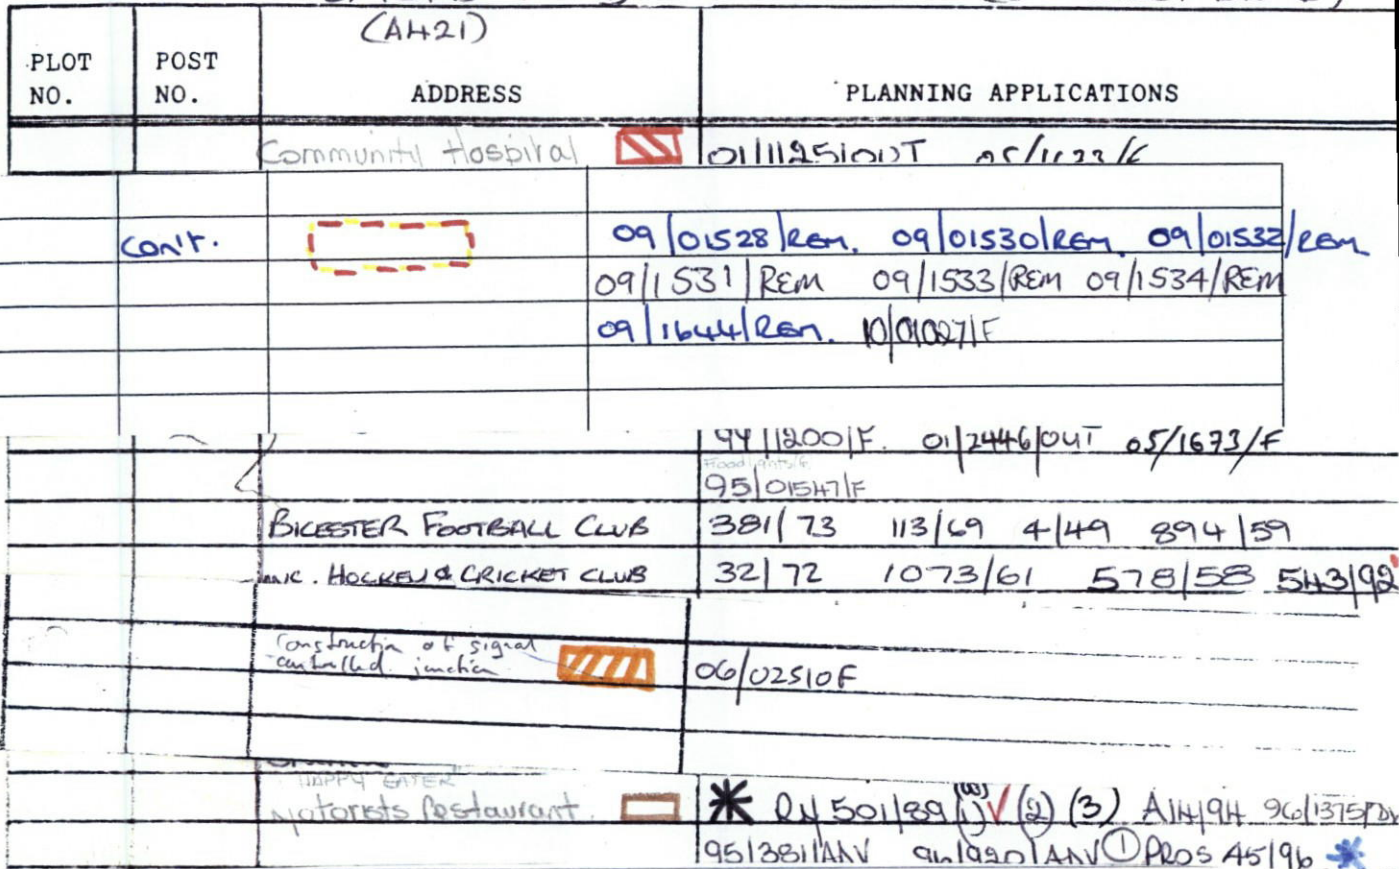 (A421)
PLOT NO.
POST NO.
ADDRESS
PLANNING APPLICATIONS
Community Hospital 01/1125/OUT 05/1133/F
con't. 09/01528/Rem. 09/01530/Rem. 09/01532/Rem
09/1531/REM 09/1533/REM 09/1534/REM
09/1644/Rem. 10/01027/F
94/1200/F. 01/2446/OUT 05/1673/F
Floodlights
95/01547/F
BICESTER FOOTBALL CLUB 381/73 113/69 4/49 894/59
INC. HOCKEY & CRICKET CLUB 32/72 1073/61 578/58 543/92
Construction of signal
controlled junction
06/02510F
"HAPPY EATER"
Motorists Restaurant. 501/89 (2) (3) A14/94 96/1375/
95/381/ADV 1 PROS 45/96